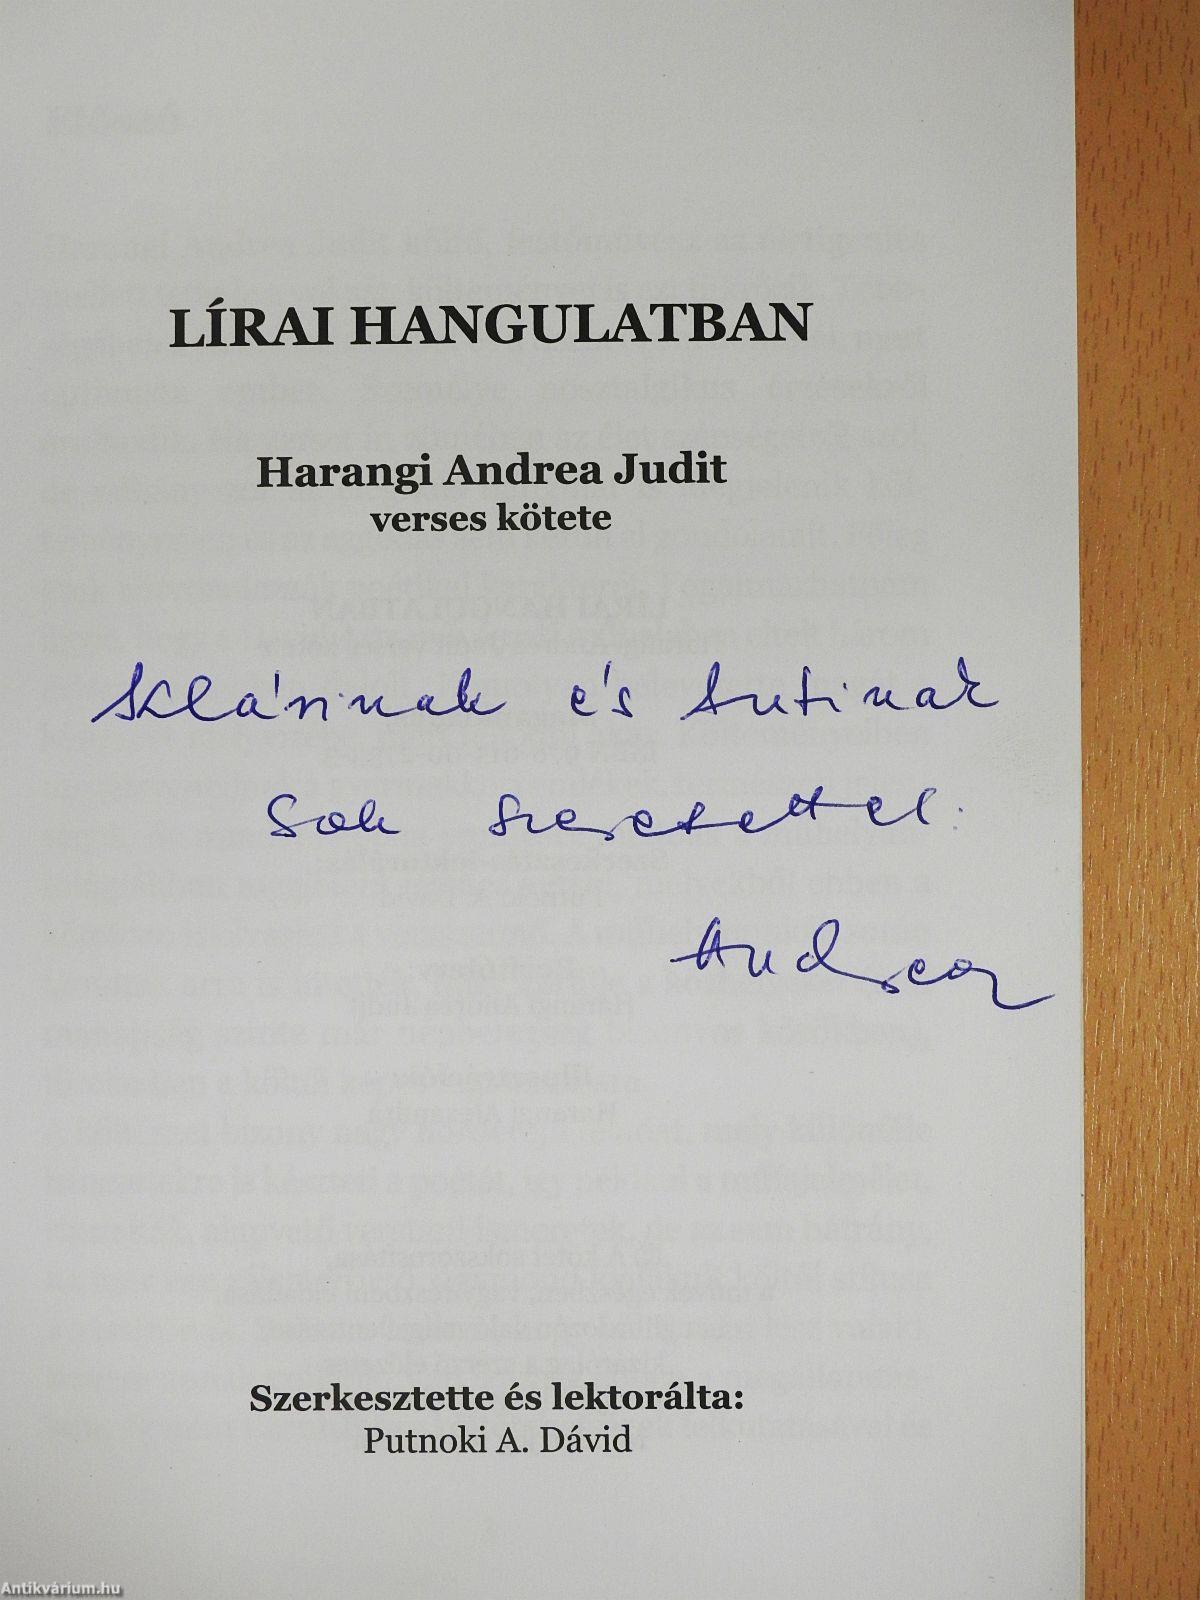 LÍRAI HANGULATBAN
Harangi Andrea Judit
verses kötete
Klárinak és Sutinak
Sok szeretettel:
Andrea
Szerkesztette és lektorálta:
Putnoki A. Dávid
Antikvárium.hu